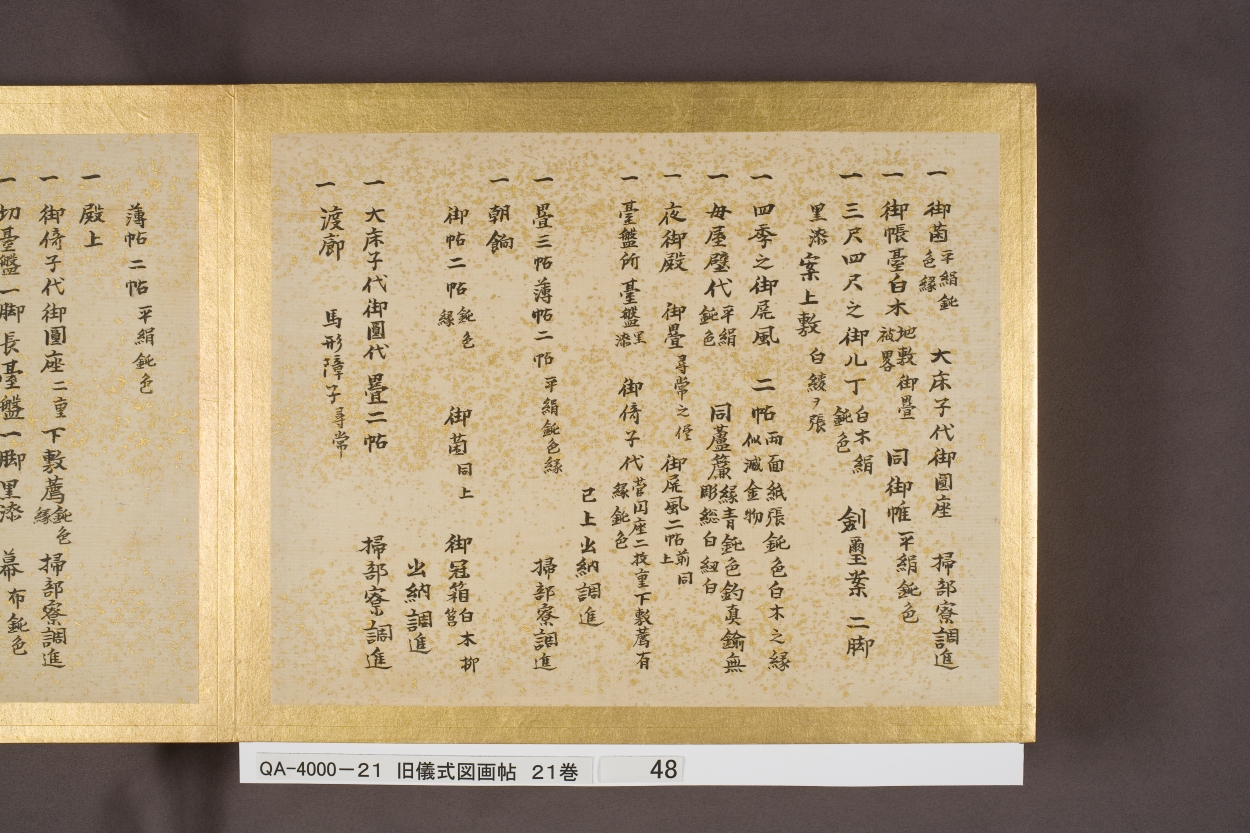 一 御茵 平絹鈍色縁 大床子代御圓座 掃部寮調進
一 御帳臺白木 地敷被畧 御疊 同御帷 平絹鈍色
一 三尺四尺之御几丁 白木絹鈍色 劍璽案 二脚
黒漆案上敷 白綾ヲ張
一 四季之御屏風 二帖 両面紙張鈍色白木之縁似減金物
一 母屋壁代 平絹鈍色 同蘆簾 縁青鈍色釣真鍮無彫総白紐白
一 夜御殿 御疊 尋常之 御屏風二帖 前同上
一 臺盤所 臺盤 黒漆 御倚子代 菅円座二枚重下敷薦有縁鈍色
已上出納調進
一 疊三帖薄帖二帖 平絹鈍色縁 掃部寮調進
一 朝餉
御帖二帖 鈍色縁 御茵 同上 御冠箱 白木柳筥
出納調進
一 大床子代御圓代 疊二帖 掃部寮調進
一 渡廊 馬形障子 尋常
薄帖二帖 平絹鈍色
一 殿上
一 御倚子代御圓座 二重 下敷薦 鈍色縁 掃部寮調進
一 切臺盤一脚長臺盤一脚黒漆 幕 布鈍色
QA-4000-21 旧儀式図画帖 21巻 48